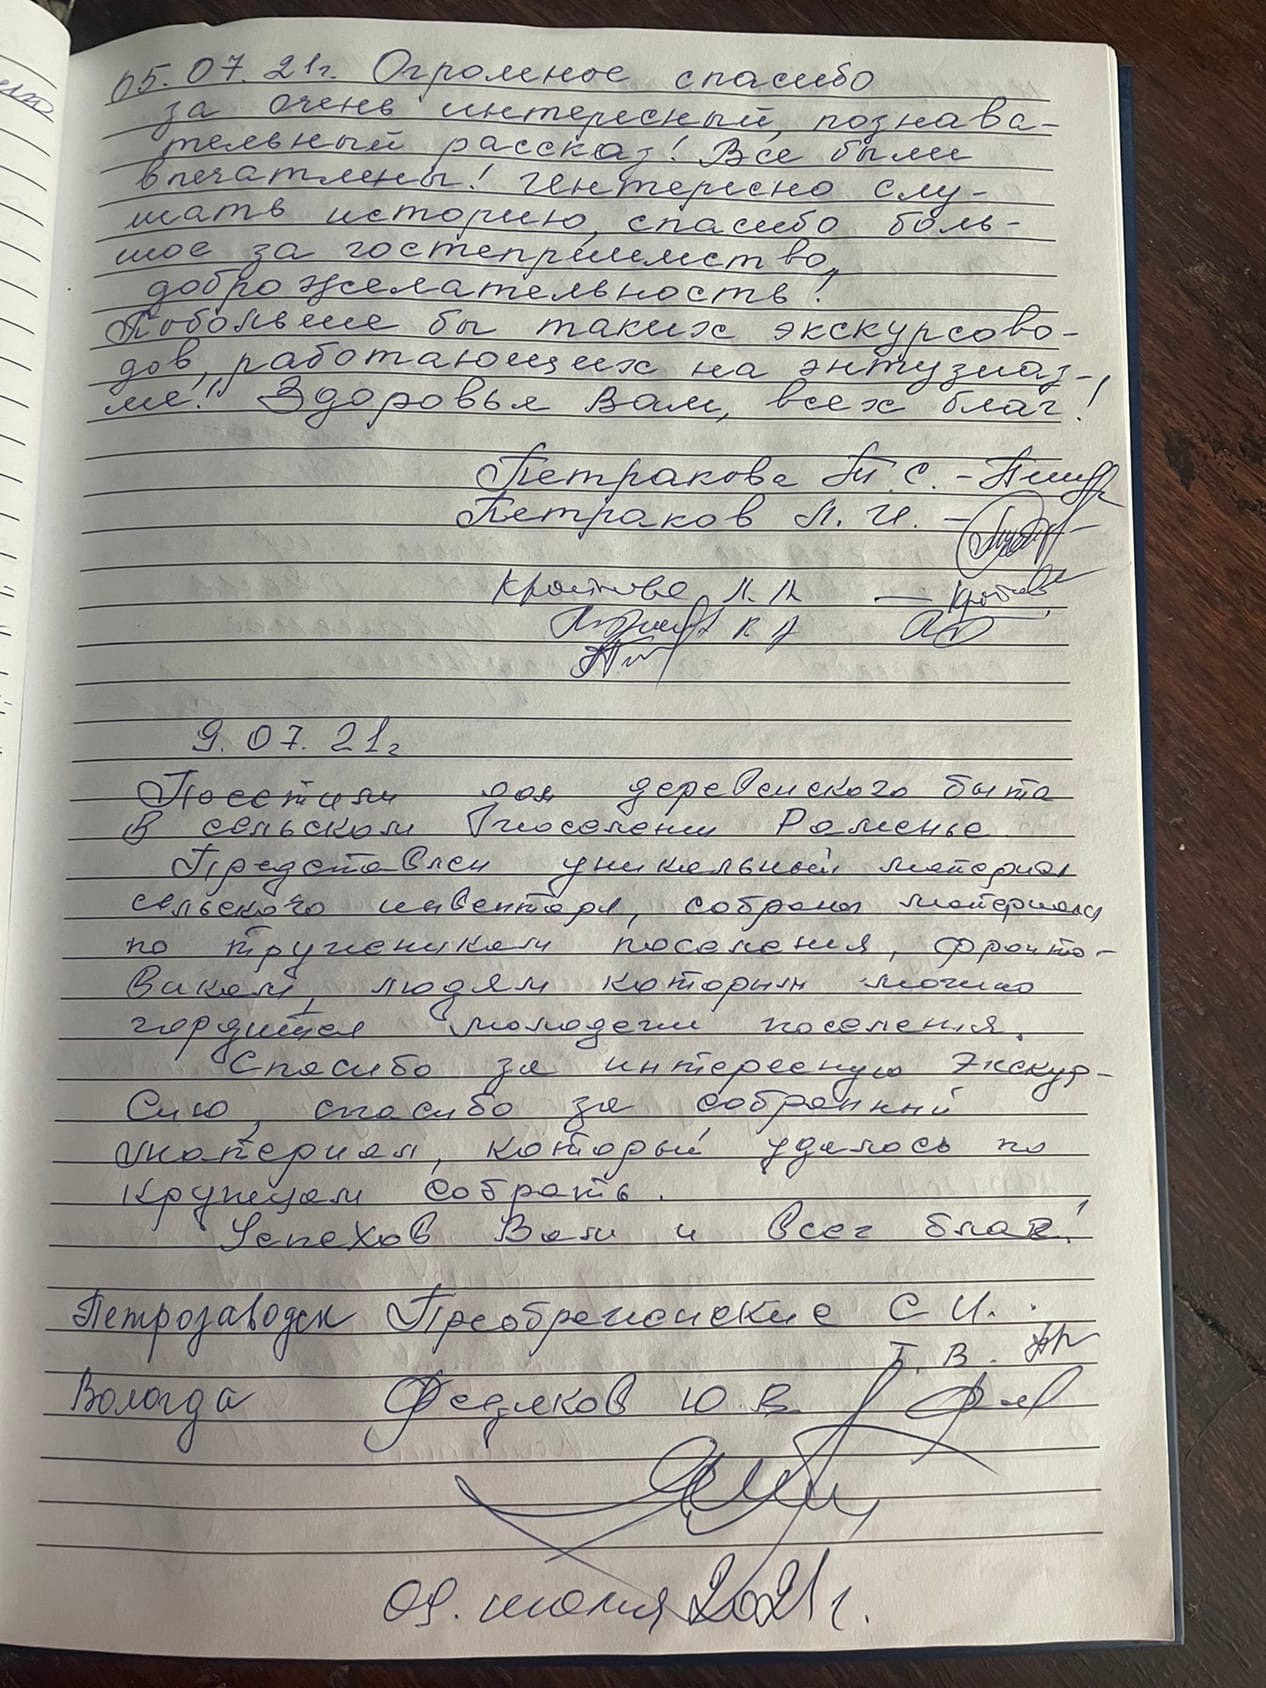 05.07.21г. Огромное спасибо
за очень интересный, познава-
тельный рассказ! Все были
впечатлены! Интересно слу-
шать историю, спасибо боль-
шое за гостеприимство,
доброжелательность!
Побольше бы таких экскурсово-
дов, работающих на энтузиаз-
ме! Здоровья Вам, всех благ!
Петракова Т.С. -
Петраков Л.И. -
Кротова Л.А — Кротова
К А
9.07.21г
Посетили дом деревенского быта
в сельском поселени Раменье
Представлен уникальный материал
сельского инвентаря, собраны материалы
по труженикам поселения, фронто-
викам, людям которым можно
гордится молодежи поселения.
Спасибо за интересную экскур-
сию, спасибо за собранный
материал, который удалось по
крупицам собрать.
Успехов Вам и всег благ!
Петрозаводск Преображенские С И.
Т. В.
Вологда Федяков Ю В
09. июля 2021г.